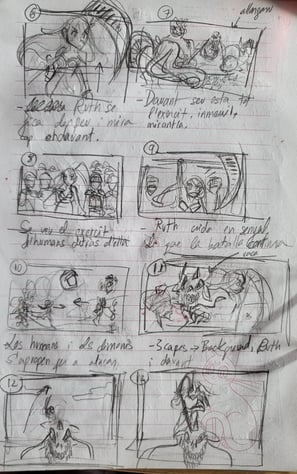 6
7
- Ruth se
fica de peu i mira
cap endavant.
- Davant seu està tot
l'exèrcit, immovil,
mirantla.
8
9
- Se veu el exèrcit
d'humans detras d'ella
Ruth crida en senyal
de que la batalla continua
10
11
Los humans i els dimonis
s'apropen per a atacar.
- 3 capes → Background, Ruth
i davant
12
13